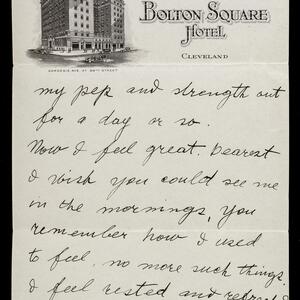 BOLTON SQUARE
HOTEL
CLEVELAND
CARNEGIE AVE. AT 89TH STREET
my pep and strength out
for a day or so.
Now I feel great. Dearest
I wish you could see me
in the mornings, you
remember how I used
to feel, no more such things.
I feel rested and refreshed